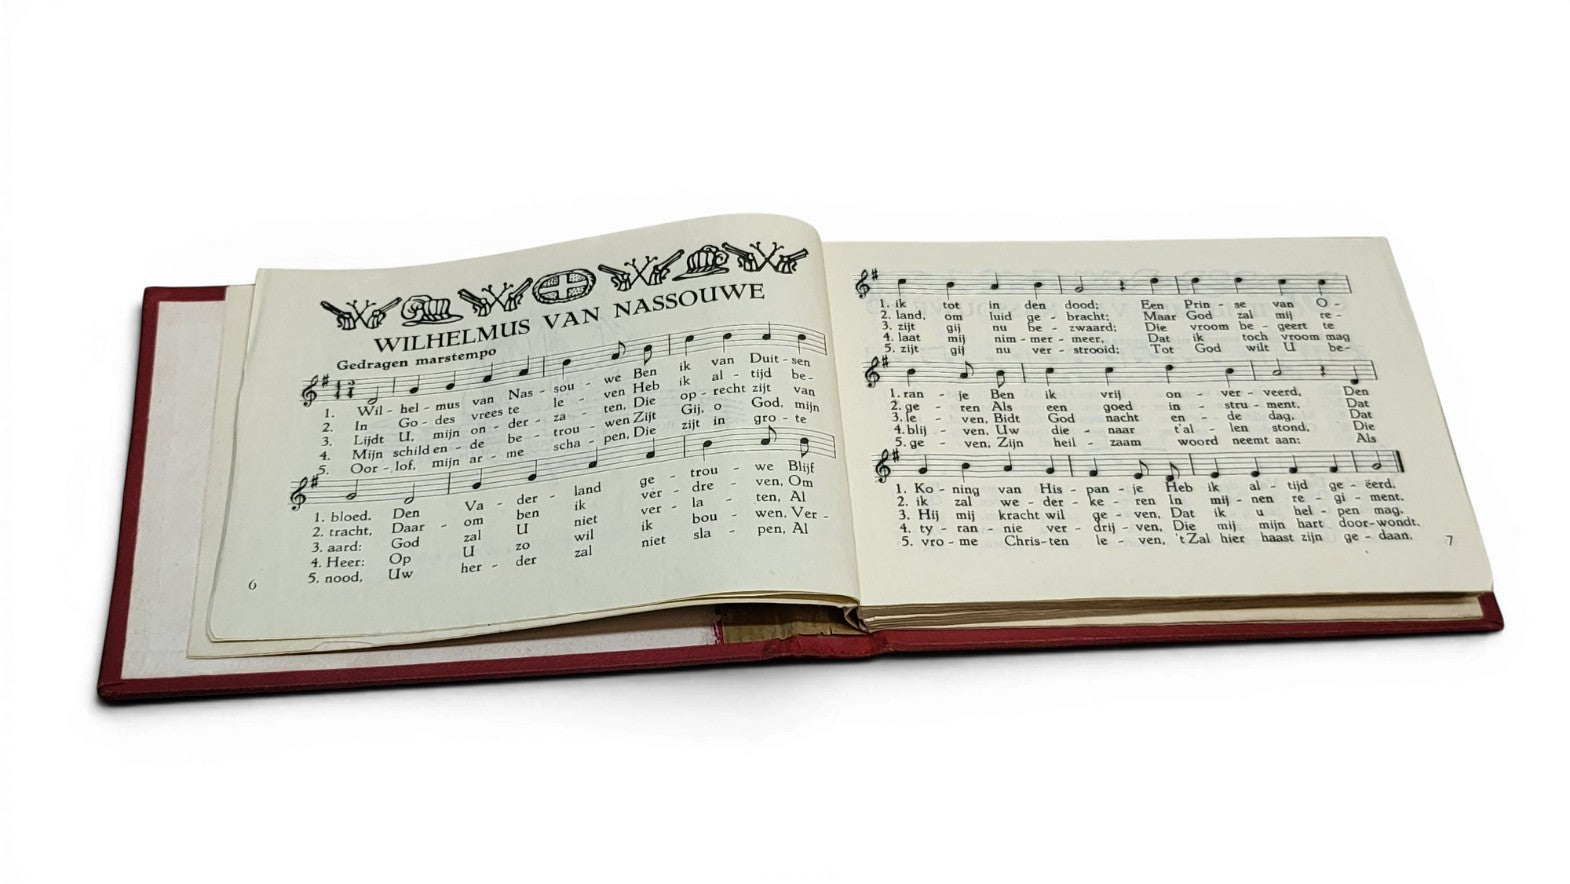 WILHELMUS VAN NASSOUWE
Gedragen marstempo
1. Wil - hel - mus van Nas - sou - we Ben ik van Duit - sen
2. In Go - des vrees te le - ven Heb ik al - tijd be -
3. Lijdt U, mijn on - der - za - ten, Die op - recht zijt van
4. Mijn schild en - de be - trou - wen Zijt Gij, o God, mijn
5. Oor - lof, mijn ar - me scha - pen, Die zijt in gro - te
1. bloed, Den Va - der - land ge - trou - we Blijf
2. tracht, Daar - om ben ik ver - dre - ven, Om
3. aard: God zal U niet ver - la - ten, Al
4. Heer: Op U zo wil ik bou - wen, Ver -
5. nood, Uw her - der zal niet sla - pen, Al
6
1. ik tot in den dood; Een Prin - se van O -
2. land, om luid ge - bracht; Maar God zal mij re -
3. zijt gij nu be - zwaard; Die vroom be - geert te
4. laat mij nim - mer - meer, Dat ik toch vroom mag
5. zijt gij nu ver - strooid; Tot God wilt U be-
1. ran - je Ben ik vrij on - ver - veerd, Den
2. ge - ren Als een goed in - stru - ment, Dat
3. le - ven, Bidt God nacht en - de dag, Dat
4. blij - ven, Uw die - naar t'al - len stond, Die
5. ge - ven, Zijn heil - zaam woord neemt aan: Als
1. Ko - ning van His - pan - je Heb ik al - tijd ge - eërd.
2. ik zal we - der - ke - ren In mij - nen re - gi - ment.
3. Hij mij kracht wil ge - ven, Dat ik u hel - pen mag.
4. ty - ran - nie ver - drij - ven, Die mij mijn hart door-wondt.
5. vro - me Chris-ten le - ven, 't Zal hier haast zijn ge - daan.
7